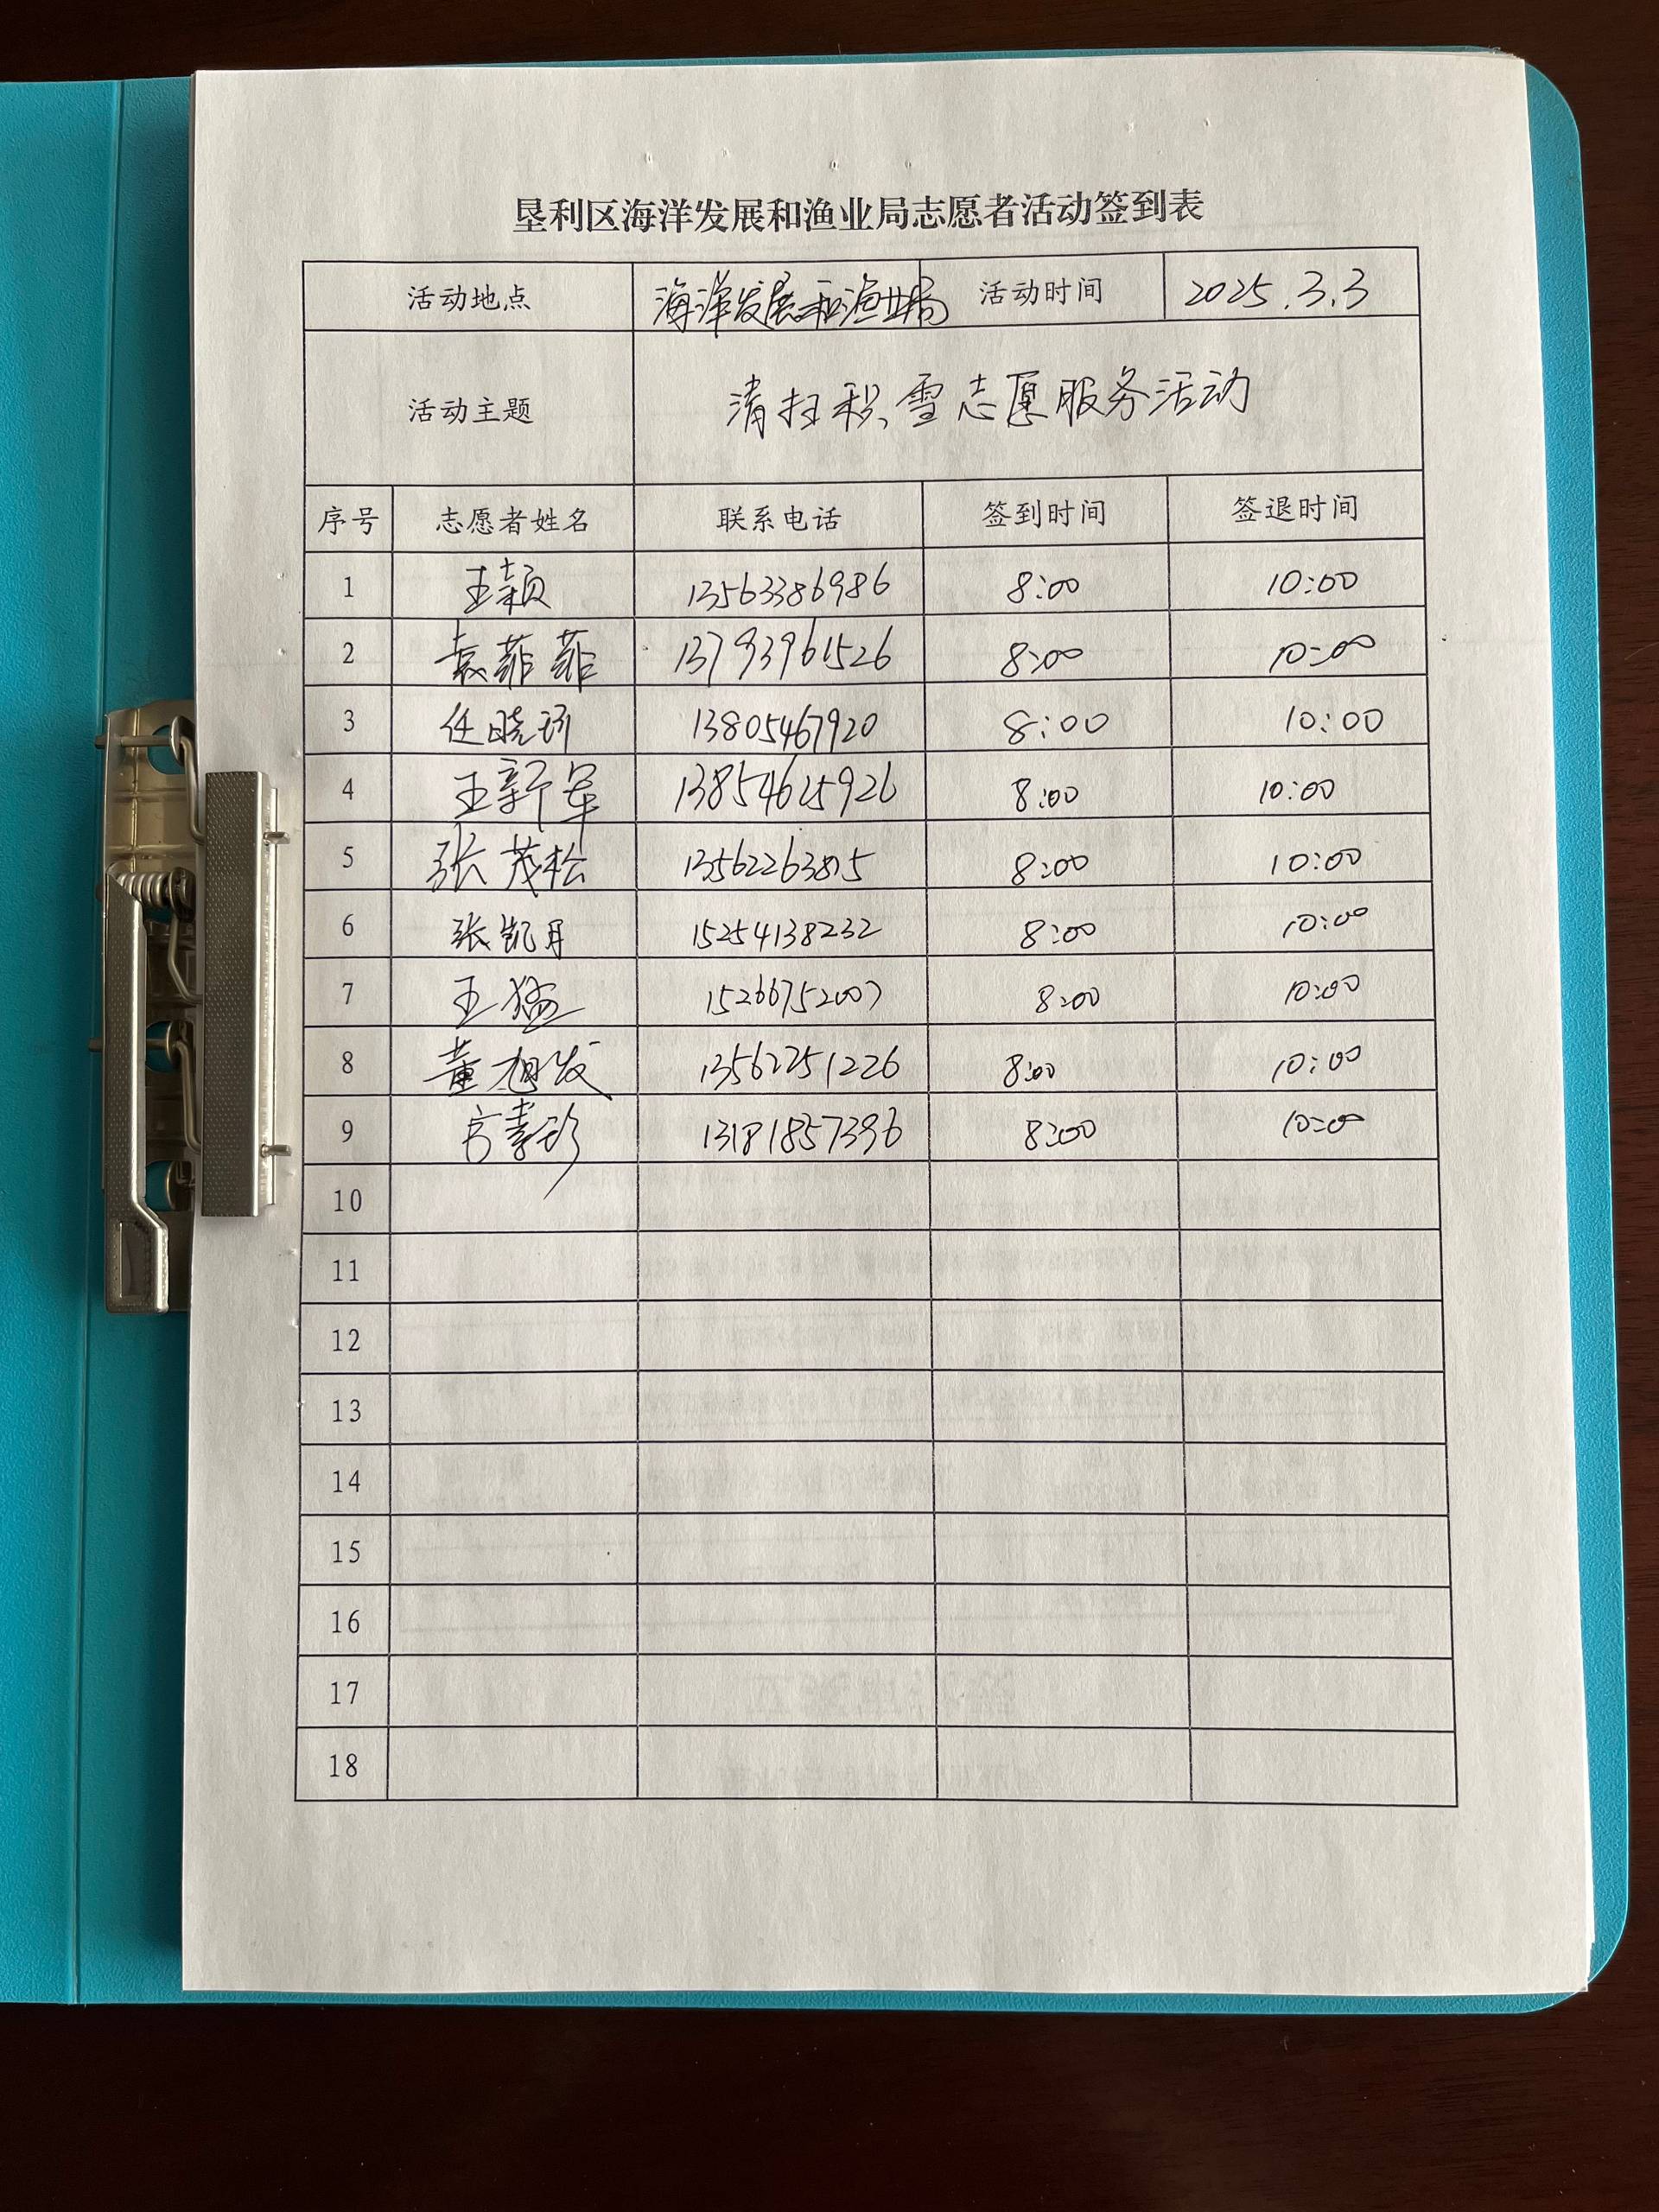 垦利区海洋发展和渔业局志愿者活动签到表
活动地点 海洋发展和渔业局 活动时间 2025.3.3
活动主题 清扫积雪志愿服务活动
序号 志愿者姓名 联系电话 签到时间 签退时间
1 王颖 13563386986 8:00 10:00
2 袁菲菲 13793961526 8:00 10:00
3 任晓琦 13805467920 8:00 10:00
4 王新军 13854625926 8:00 10:00
5 张茂松 13562263815 8:00 10:00
6 张凯月 15254138232 8:00 10:00
7 王猛 15266752007 8:00 10:00
8 董旭发 13562251226 8:00 10:00
9 13181857396 8:00 10:00
10
11
12
13
14
15
16
17
18